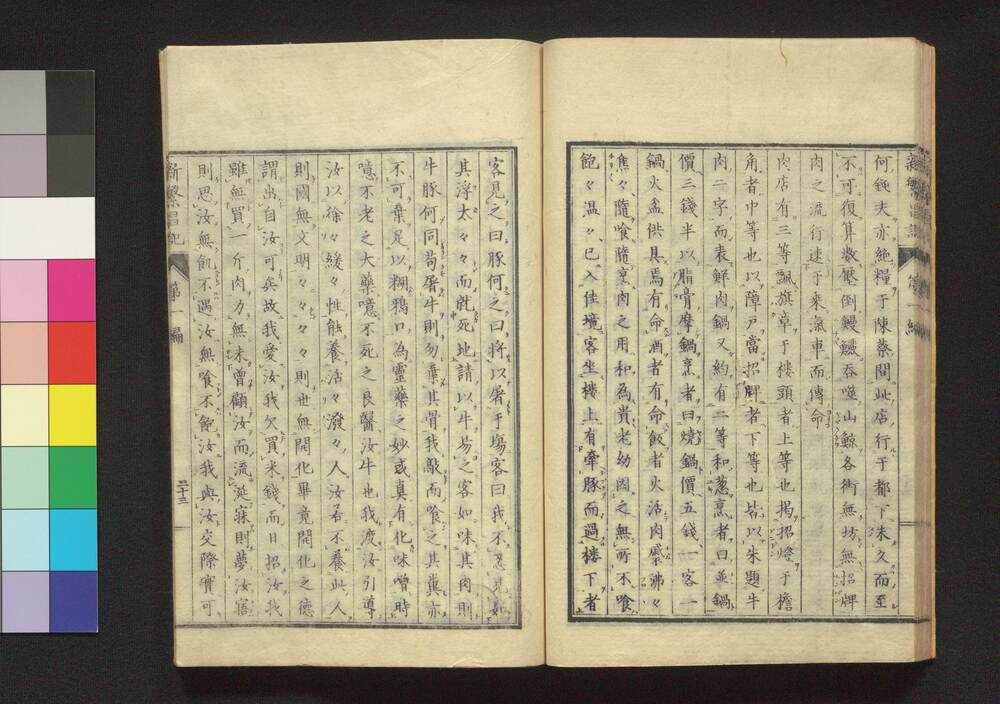 何鈍夫亦絶糧于陳蔡間此店行于都下未久而至
不可復算数壓倒鰻鱺吞噬山鯨各術無坊無招牌
肉之流行速于乗滊車而傳命
肉店有三等飄旗章于楼頭者上等也掲招燈于檐
角者中等也以障戸當招牌者下等也皆以朱題牛
肉二字而表鮮肉鍋又約有二等和葱烹者曰並鍋
價三錢半以脂膏摩鍋烹者曰焼鍋價五錢一客一
鍋火盆供具焉有命酒者有命飯者火活肉沸々
焦々隨喰隨烹肉之用和為貴老幼因之無所不喰
飽々温々已入佳境客坐楼上有牽豚而過楼下者
客見之曰豚何之曰将以屠于場客曰我不忍見如
其浮太々々而就死地請以牛易之客如味其肉則
牛豚何同苟屠牛則勿棄其骨我敲而喰之其糞亦
不可棄足以糊鴉口為靈藥之妙或真有化味噌時
噫不老之大藥噫不死之良醫汝牛也我度汝引導
汝以徐々緩々性能養活々潑々人汝若不養此人
則國無文明々々々々則世無開化畢竟開化之德
謂出自汝可矣故我愛汝我欠買米錢而日招汝我
雖無買一斤肉力無未曽顧汝而流涎寐則夢汝寤
則思汝無飢不遇汝無喰不飽汝我與汝交際實可
新繁昌記
第一編
二十三